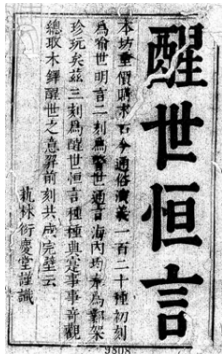 醒世恒言
本坊重價購求古今通俗演義一百二十種初刻
爲喻世明言二刻爲警世通言海内均奉爲鄴架
珍玩矣茲三刻爲醒世恒言種種典實事事奇觀
總取木鐸醒世之意并前刻共成完璧云
藝林衍慶堂謹識
9508